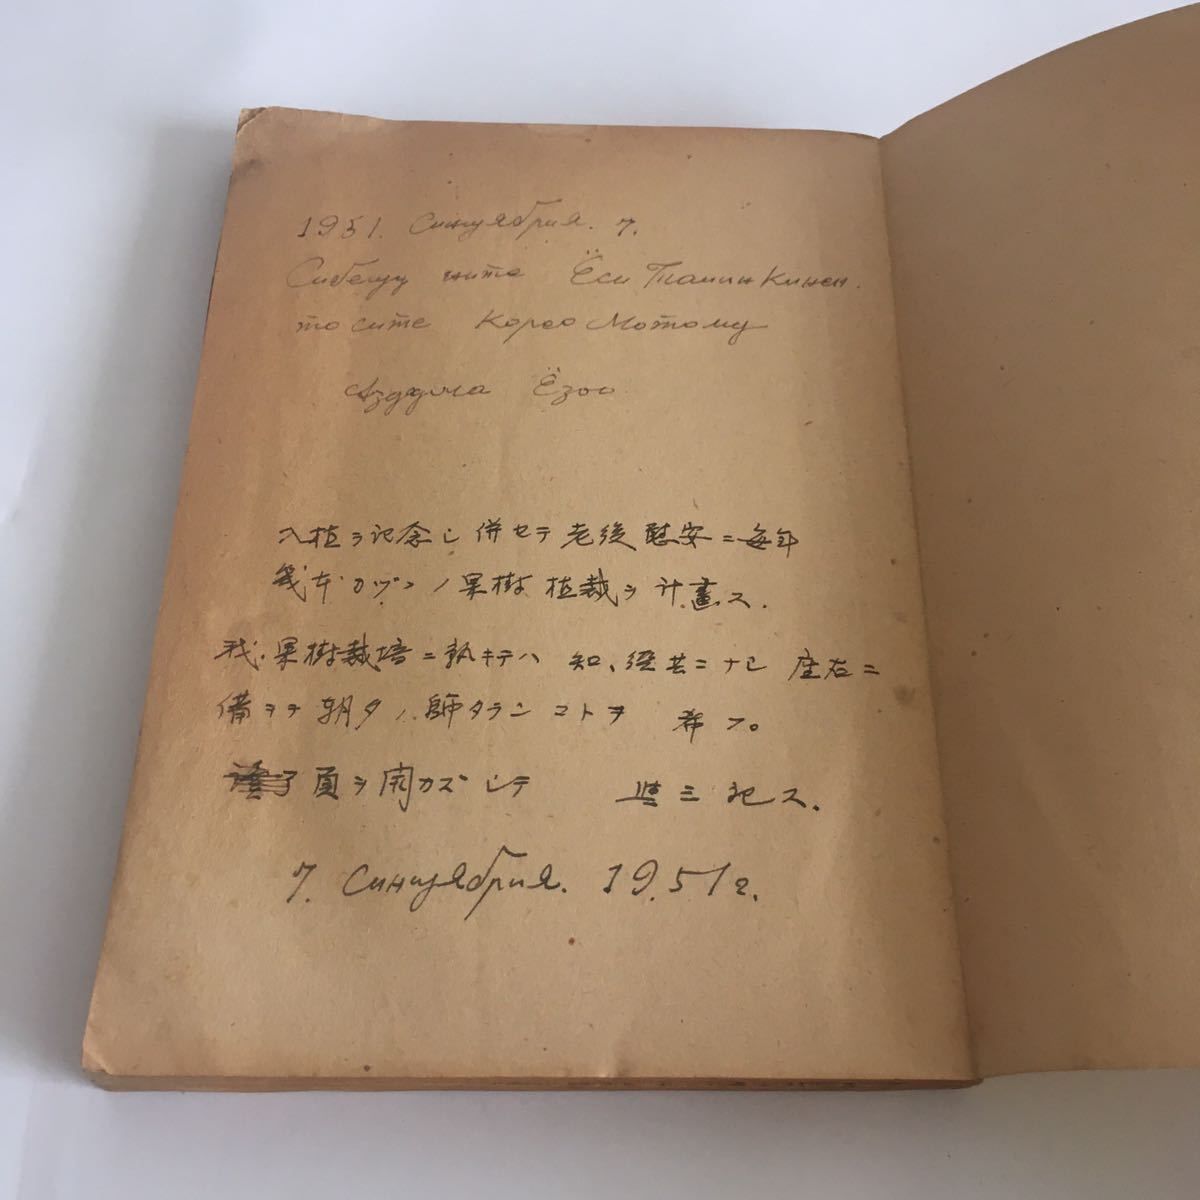 1951. Синуябрия. 7.
Сибецу ните Ёси Танин Кинен.
то сите Корео Мотому
Ёзоо
入植ヲ記念シ併セテ老後慰安ニ毎年
幾本カヅツノ果樹植裁ヲ計畫ス.
我.果樹栽培ニ執キテハ 知、経共ニナシ 座右ニ
備ヲテ朝夕ノ師タランコトヲ 希フ。
頁ヲ開カズシテ 三記ス.
7. Синуябрия. 1951г.